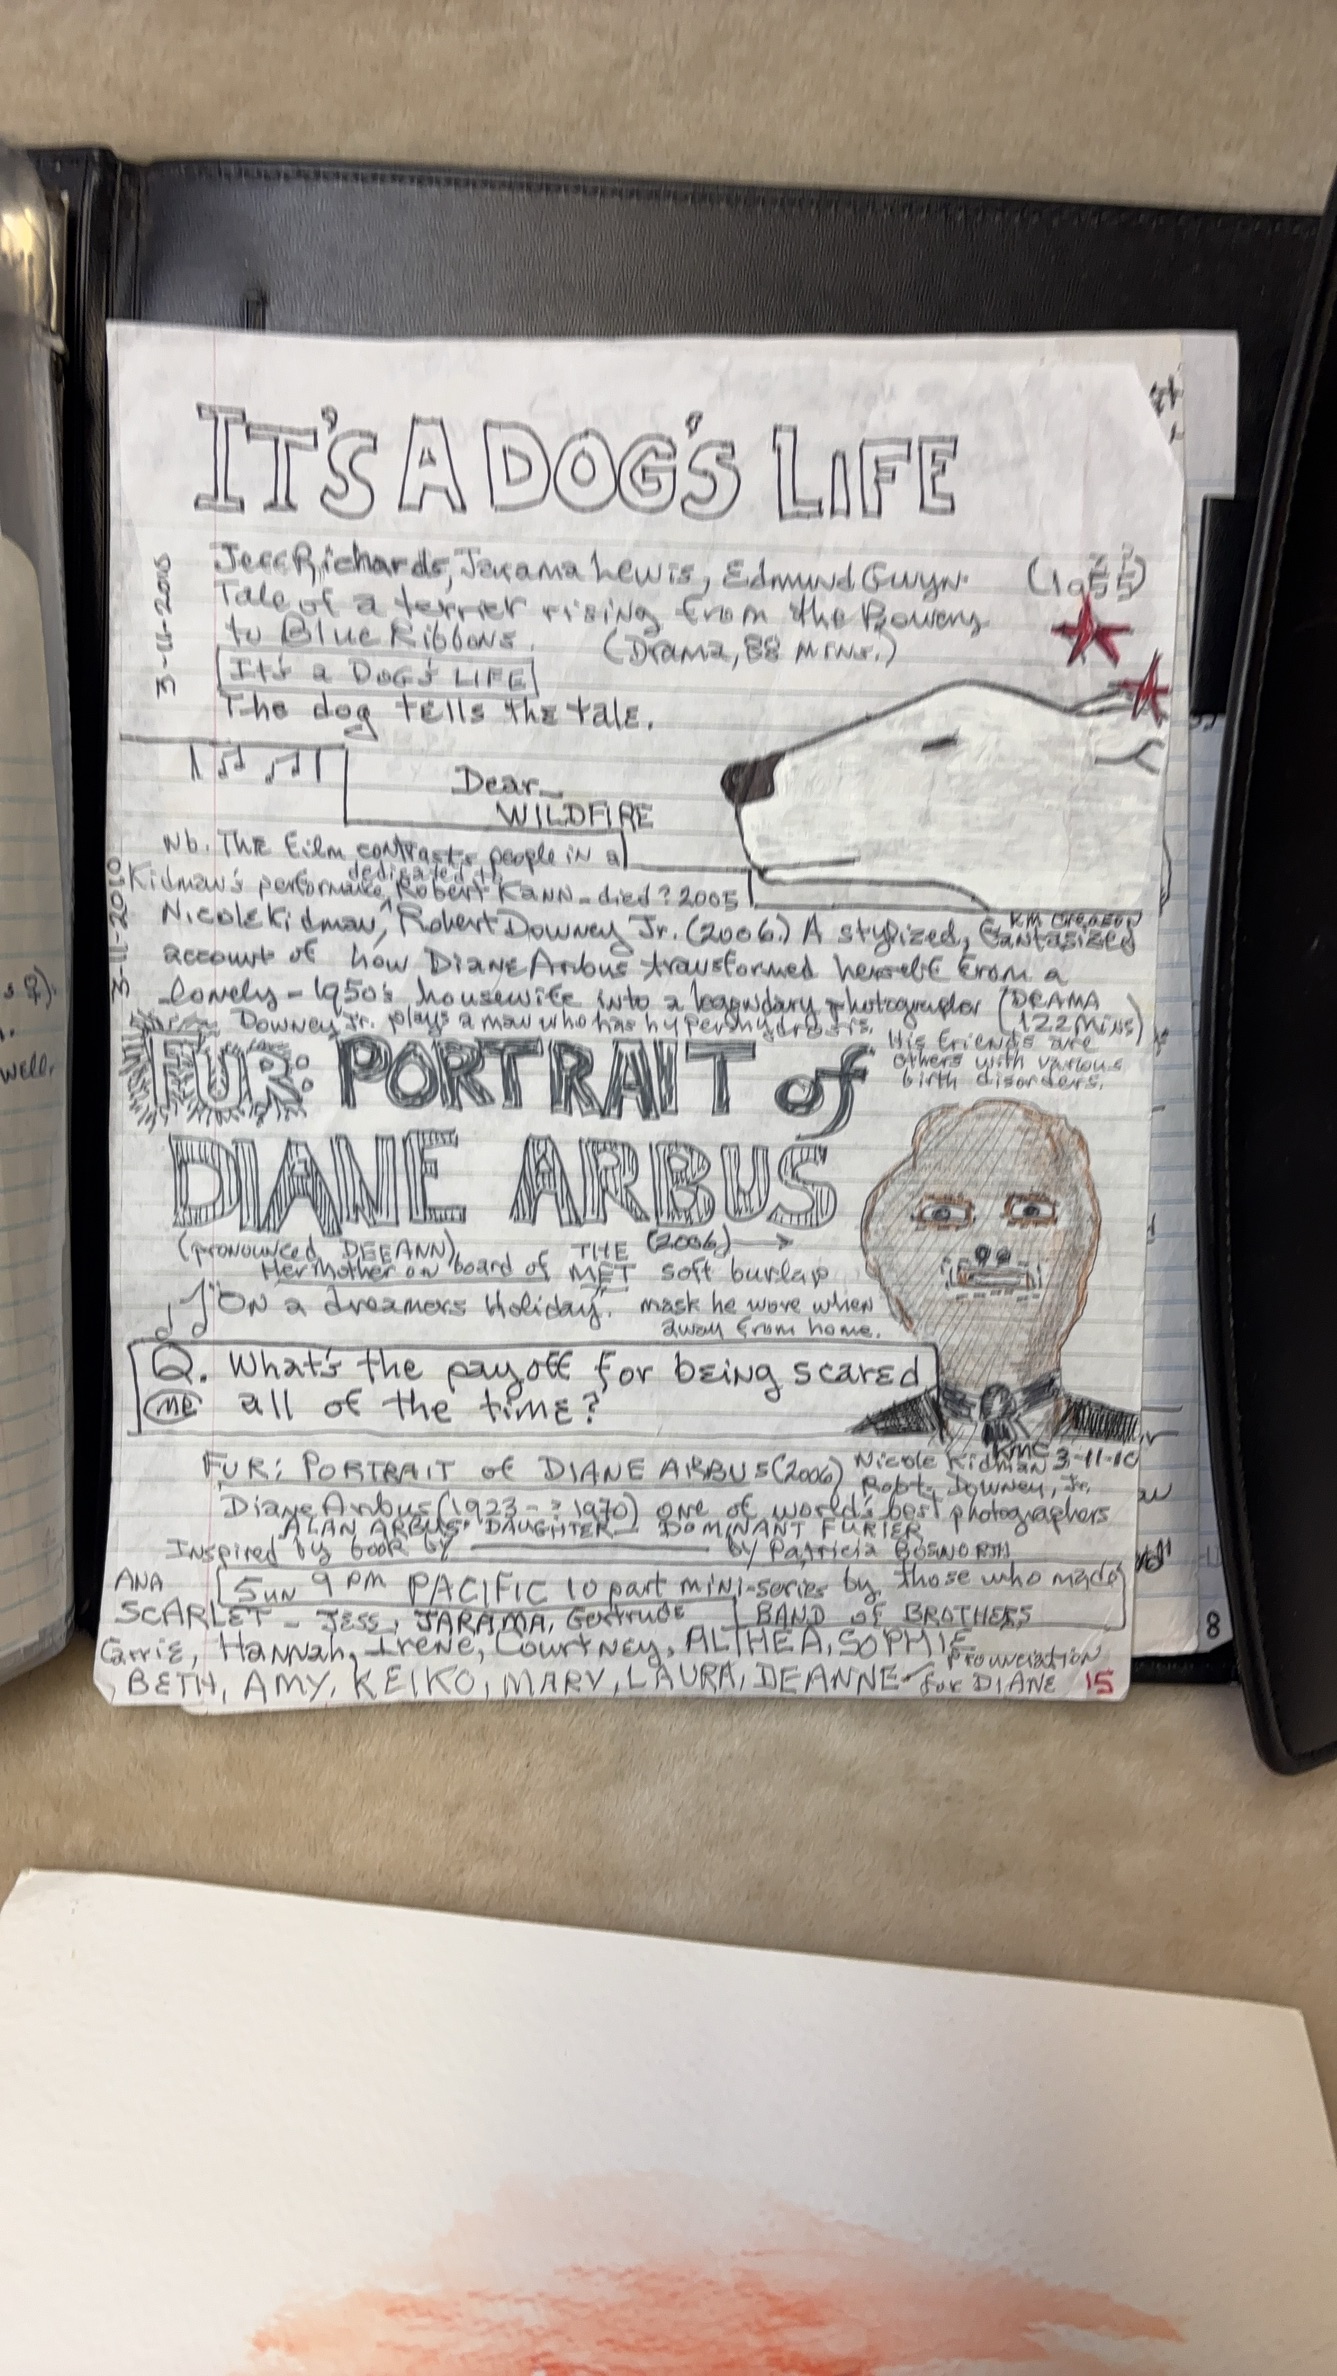 IT'S A DOG'S LIFE
3-111-2015
Jeff Richards, Jarama Lewis, Edmund Gwyn. (1955)
Tale of a terrier rising from the Bowery
to Blue Ribbons. (Drama, 88 MINS.)
It's a DOG'S LIFE
The dog tells the tale.
Dear_
WILDFIRE
Nb. THE film contrasts people in a
dedicated to
Kidman's performance, Robert KANN - died ? 2005
3-111-2010
Nicole Kidman, Robert Downey Jr. (2006.) A stylized, fantasized
account of how Diane Arbus transformed herself from a
lonely - 1950's housewife into a legendary photographer (DRAMA
122 MINS)
Downey Jr. plays a man who has hyperhydrosis.
His friends are
others with various
birth disorders.
FUR: PORTRAIT of
DIANE ARBUS
(pronounced DEEANN) (2006)
Her Mother on board of THE MET
soft burlap
mask he wore when
away from home.
"ON a dreamers Holiday."
Q. What's the payoff for being scared
ME all of the time?
KMC 3-11-10
FUR: PORTRAIT of DIANE ARBUS (2006) Nicole Kidman
Robt. Downey, Jr.
Diane Arbus (1923 - ? 1970) one of world's best photographers
ALAN ARBUS' DAUGHTER DOMINANT FURIER
Inspired by book by by Patricia BOSWORTH
ANA
Sun 9 PM PACIFIC 10 part mini-series by those who made
BAND of BROTHERS
SCARLET - JESS, JARAMA, Gertrude
Carrie, Hannah, Irene, Courtney, ALTHEA, SOPHIE
BETH, AMY, KEIKO, MARY, LAURA, DEANNE
Prounciation
for DIANE
15
8
well.